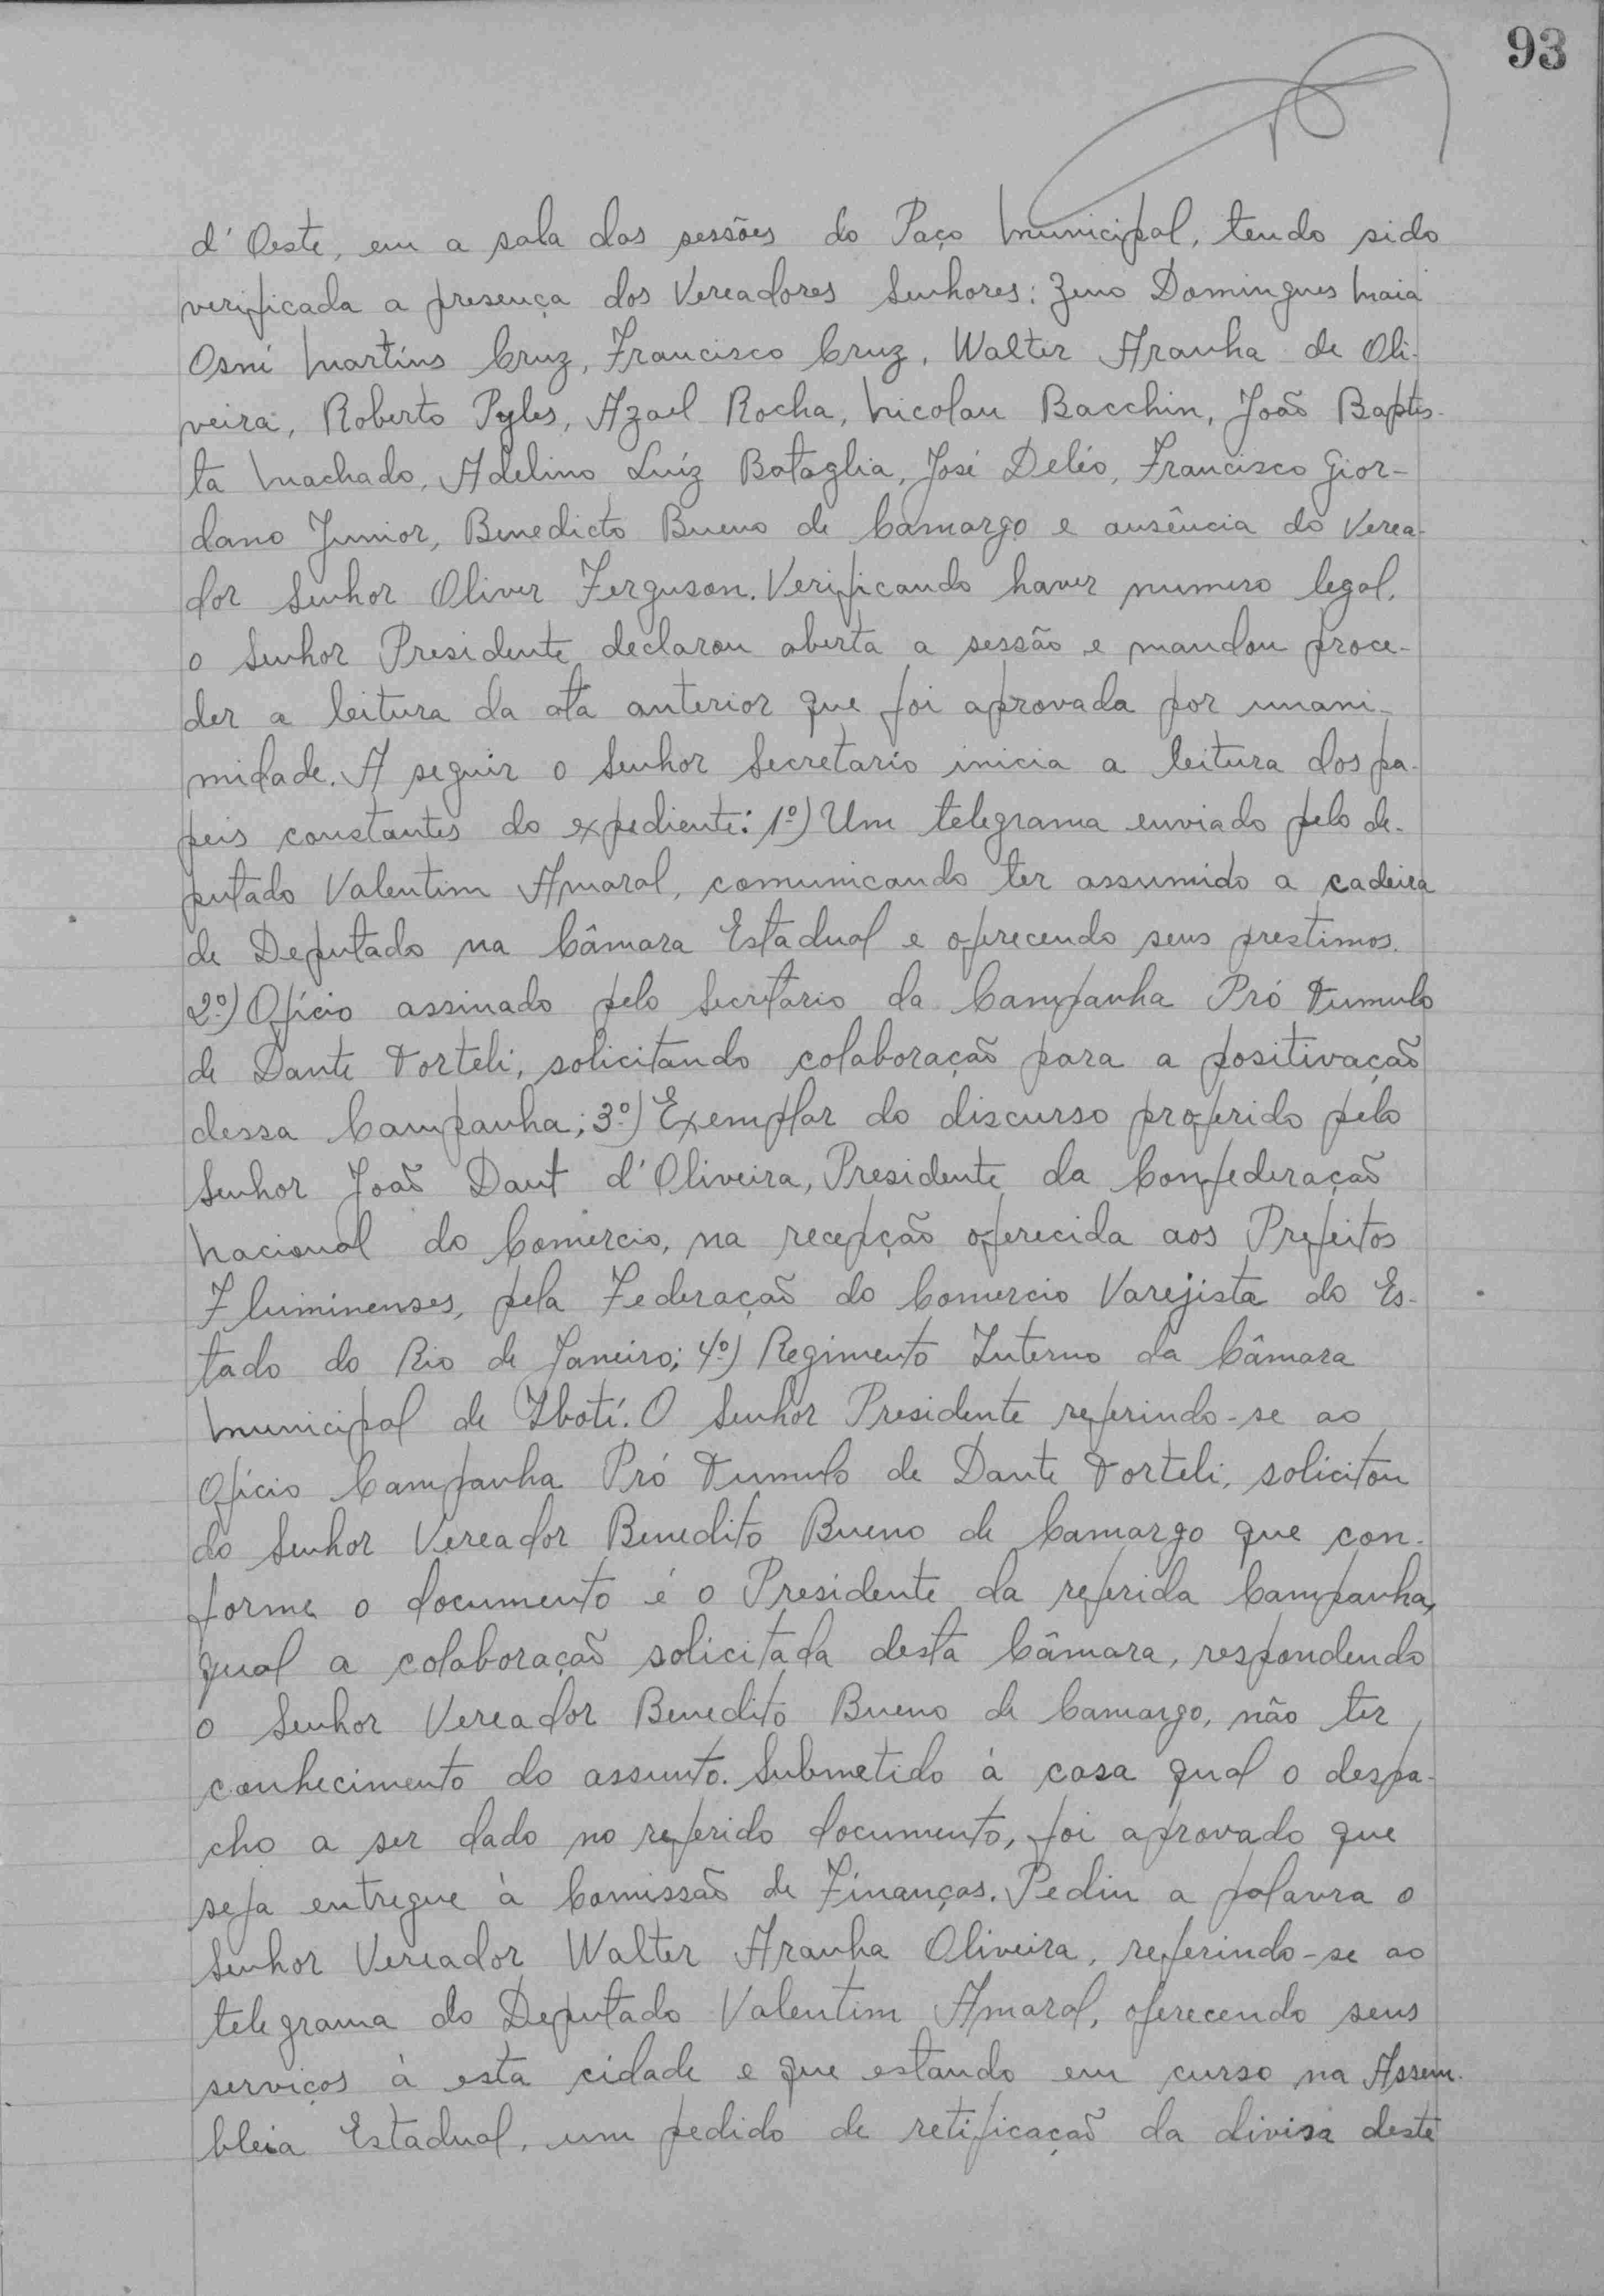 93
d'Oeste, em a sala das sessões do Paço Municipal, tendo sido
verificada a presença dos Vereadores Senhores: Zeno Domingues Maia
Osni Martins Cruz, Francisco Cruz, Walter Aranha de Oli-
veira, Roberto Pyles, Azael Rocha, Nicolau Bacchin, João Baptis-
ta Machado, Adelino Luíz Bataglia, José Deléo, Francisco Gior-
dano Junior, Benedicto Bueno de Camargo e ausência do Verea-
dor Senhor Oliver Ferguson. Verificando haver numero legal,
o Senhor Presidente declarou aberta a sessão e mandou proce-
der a leitura da ata anterior que foi aprovada por unani-
midade. A seguir o Senhor Secretario inicia a leitura dos pa-
peis constantes do expediente: 1º) Um telegrama enviado pelo de-
putado Valentim Amaral, comunicando ter assumido a cadeira
de Deputado na Câmara Estadual e oferecendo seus prestimos.
2º) Ofício assinado pelo Secretario da Campanha Pró Tumulo
de Dante Torteli, solicitando colaboração para a positivação
dessa Campanha; 3º) Exemplar do discurso proferido pelo
Senhor João Daut d'Oliveira, Presidente da Confederação
Nacional do Comercio, na recepção oferecida aos Prefeitos
Fluminenses, pela Federação do Comercio Varejista do Es-
tado do Rio de Janeiro; 4º) Regimento Interno da Câmara
Municipal de Iboti. O Senhor Presidente referindo-se ao
Ofício Campanha Pró Tumulo de Dante Torteli, solicitou
do Senhor Vereador Benedito Bueno de Camargo que con-
forme o documento é o Presidente da referida Campanha,
qual a colaboração solicitada desta Câmara, respondendo
o Senhor Vereador Benedito Bueno de Camargo, não ter
conhecimento do assunto. Submetido à casa qual o despa-
cho a ser dado no referido documento, foi aprovado que
seja entregue à Comissão de Finanças. Pediu a palavra o
Senhor Vereador Walter Aranha Oliveira, referindo-se ao
telegrama do Deputado Valentim Amaral, oferecendo seus
serviços à esta cidade e que estando em curso na Assem-
bleia Estadual, um pedido de retificação da divisa deste